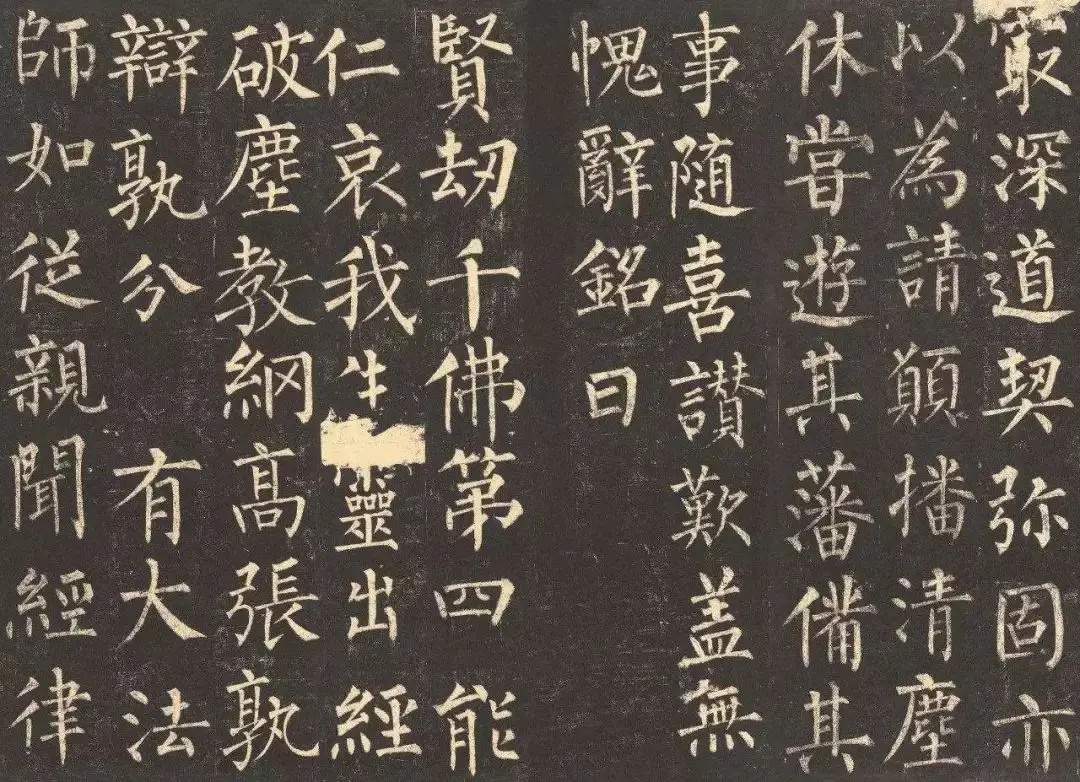 最深道契弥固亦
以為請願播清塵
休甞遊其藩備其
事随喜讃歎盖無
愧辭銘曰
賢劫千佛第四能
仁哀我生靈出經
破塵教綱高張孰
辯孰分 有大法
師如従親聞經律